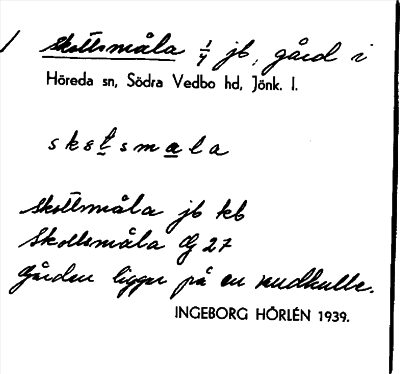 Skottsmåla 1/4 jb, gård i
Höreda sn, Södra Vedbo hd, Jönk. l.
skotsmala
Skottsmåla jb kb
Skottsmåla G 27
Gården ligger på en sandkulle.
INGEBORG HÖRLÉN 1939.